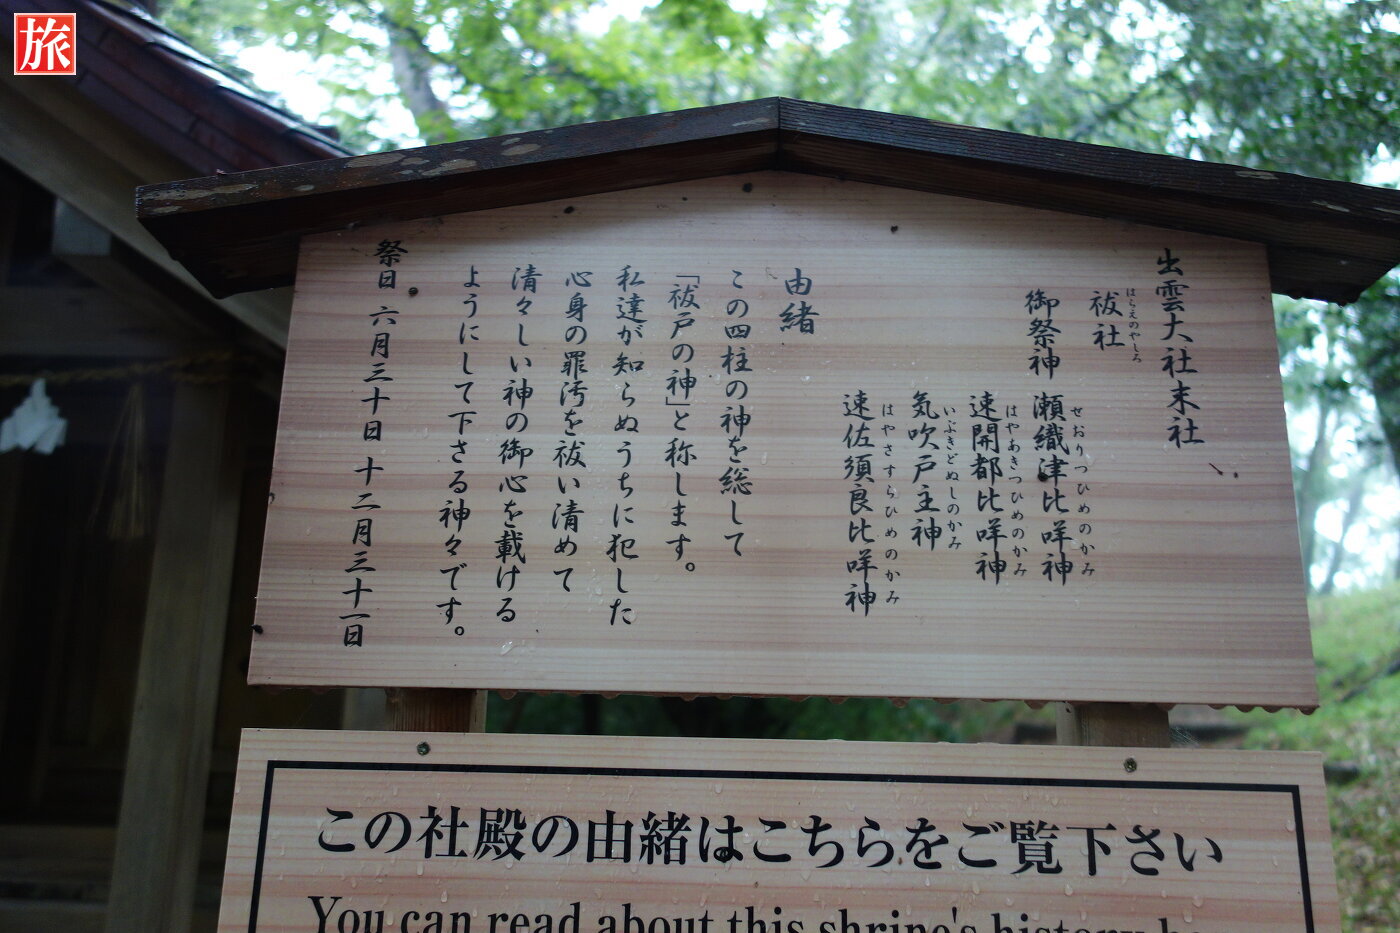 旅
出雲大社末社
祓社
はらえのやしろ
御祭神 瀬織津比咩神
せおりつひめのかみ
速開都比咩神
はやあきつひめのかみ
気吹戸主神
いぶきどぬしのかみ
速佐須良比咩神
はやさすらひめのかみ
由緒
この四柱の神を総して
「祓戸の神」と称します。
私達が知らぬうちに犯した
心身の罪汚を祓い清めて
清々しい神の御心を載ける
ようにして下さる神々です。
祭日 六月三十日 十二月三十一日
この社殿の由緒はこちらをご覧下さい
You can read about this shrine's history